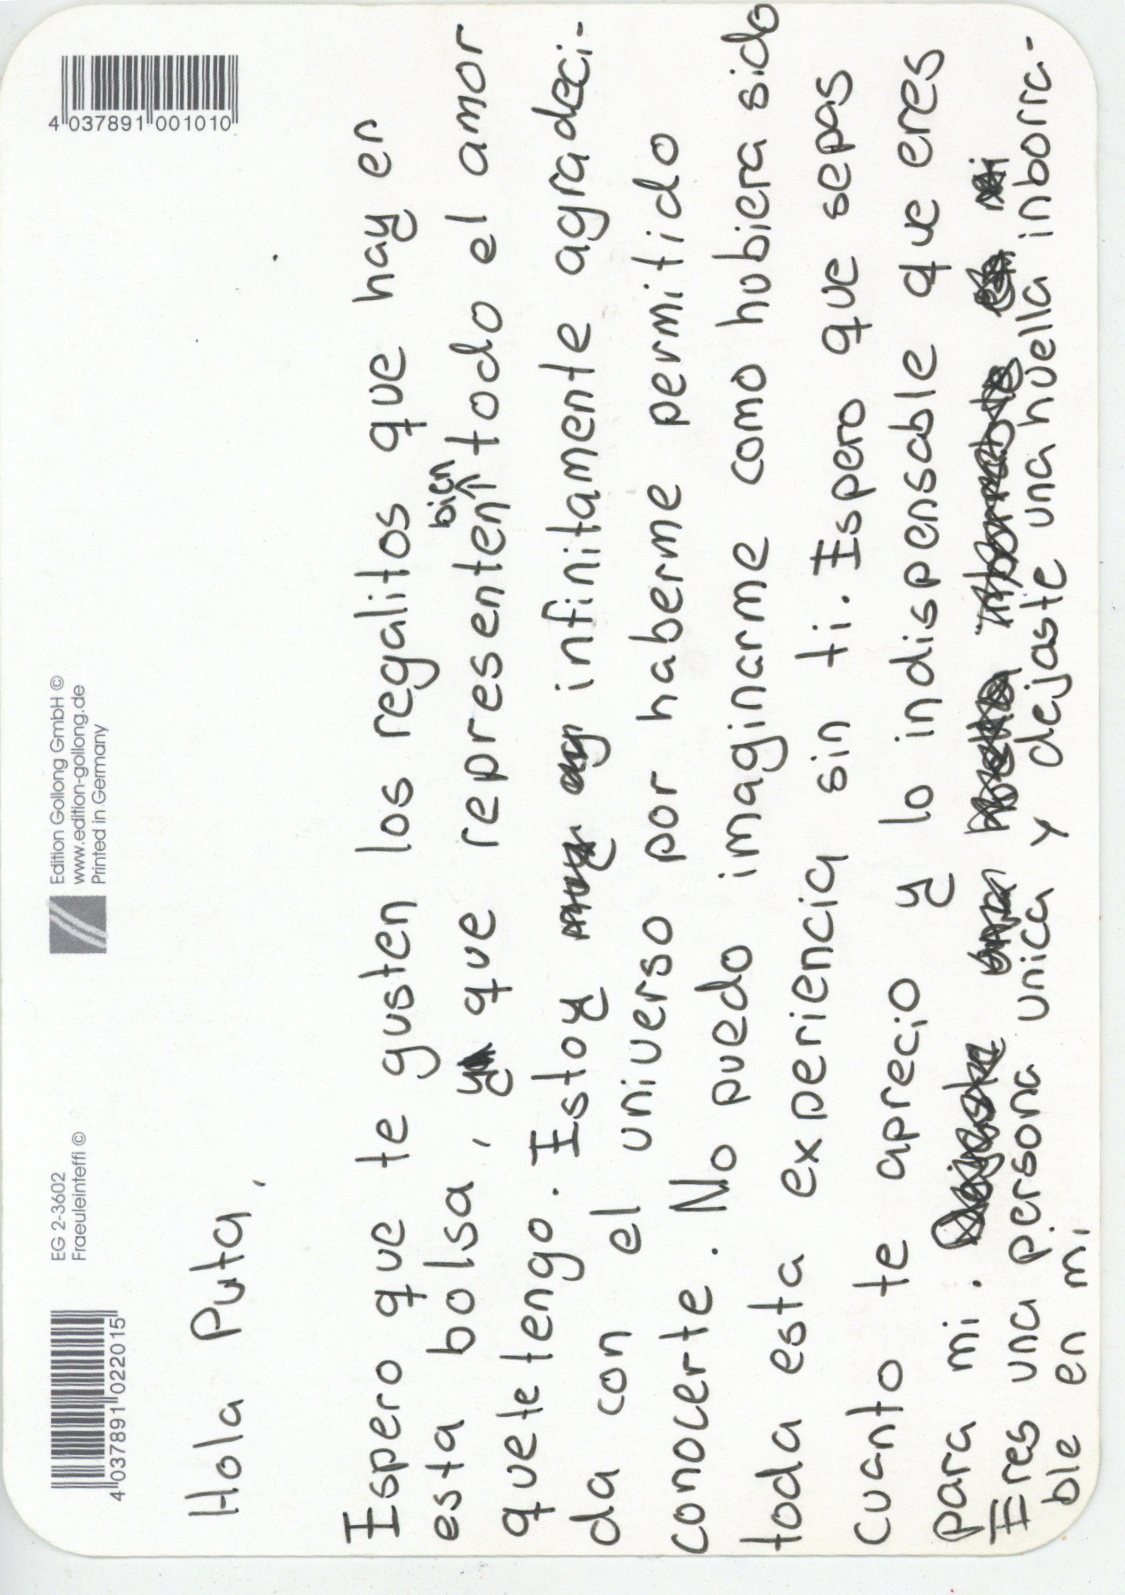 4 037891 022015
EG 2-3602
Fraeuleinteffi ©
Edition Gollong GmbH ©
www.edition-gollong.de
Printed in Germany
4 037891 001010
Hola Puta,
Espero que te gusten los regalitos que hay en
esta bolsa, que representen bien todo el amor
que te tengo. Estoy infinitamente agradeci-
da con el universo por haberme permitido
conocerte. No puedo imaginarme como hubiera sido
toda esta experiencia sin ti. Espero que sepas
cuanto te aprecio y lo indispensable que eres
para mi.
Eres una persona unica y dejaste una huella inborra-
ble en mi